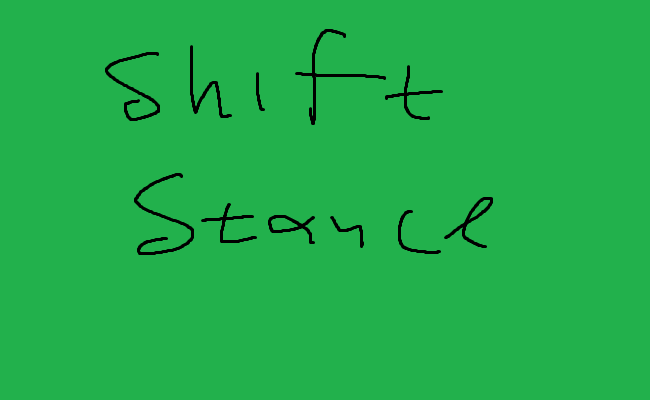 Shift
Stance